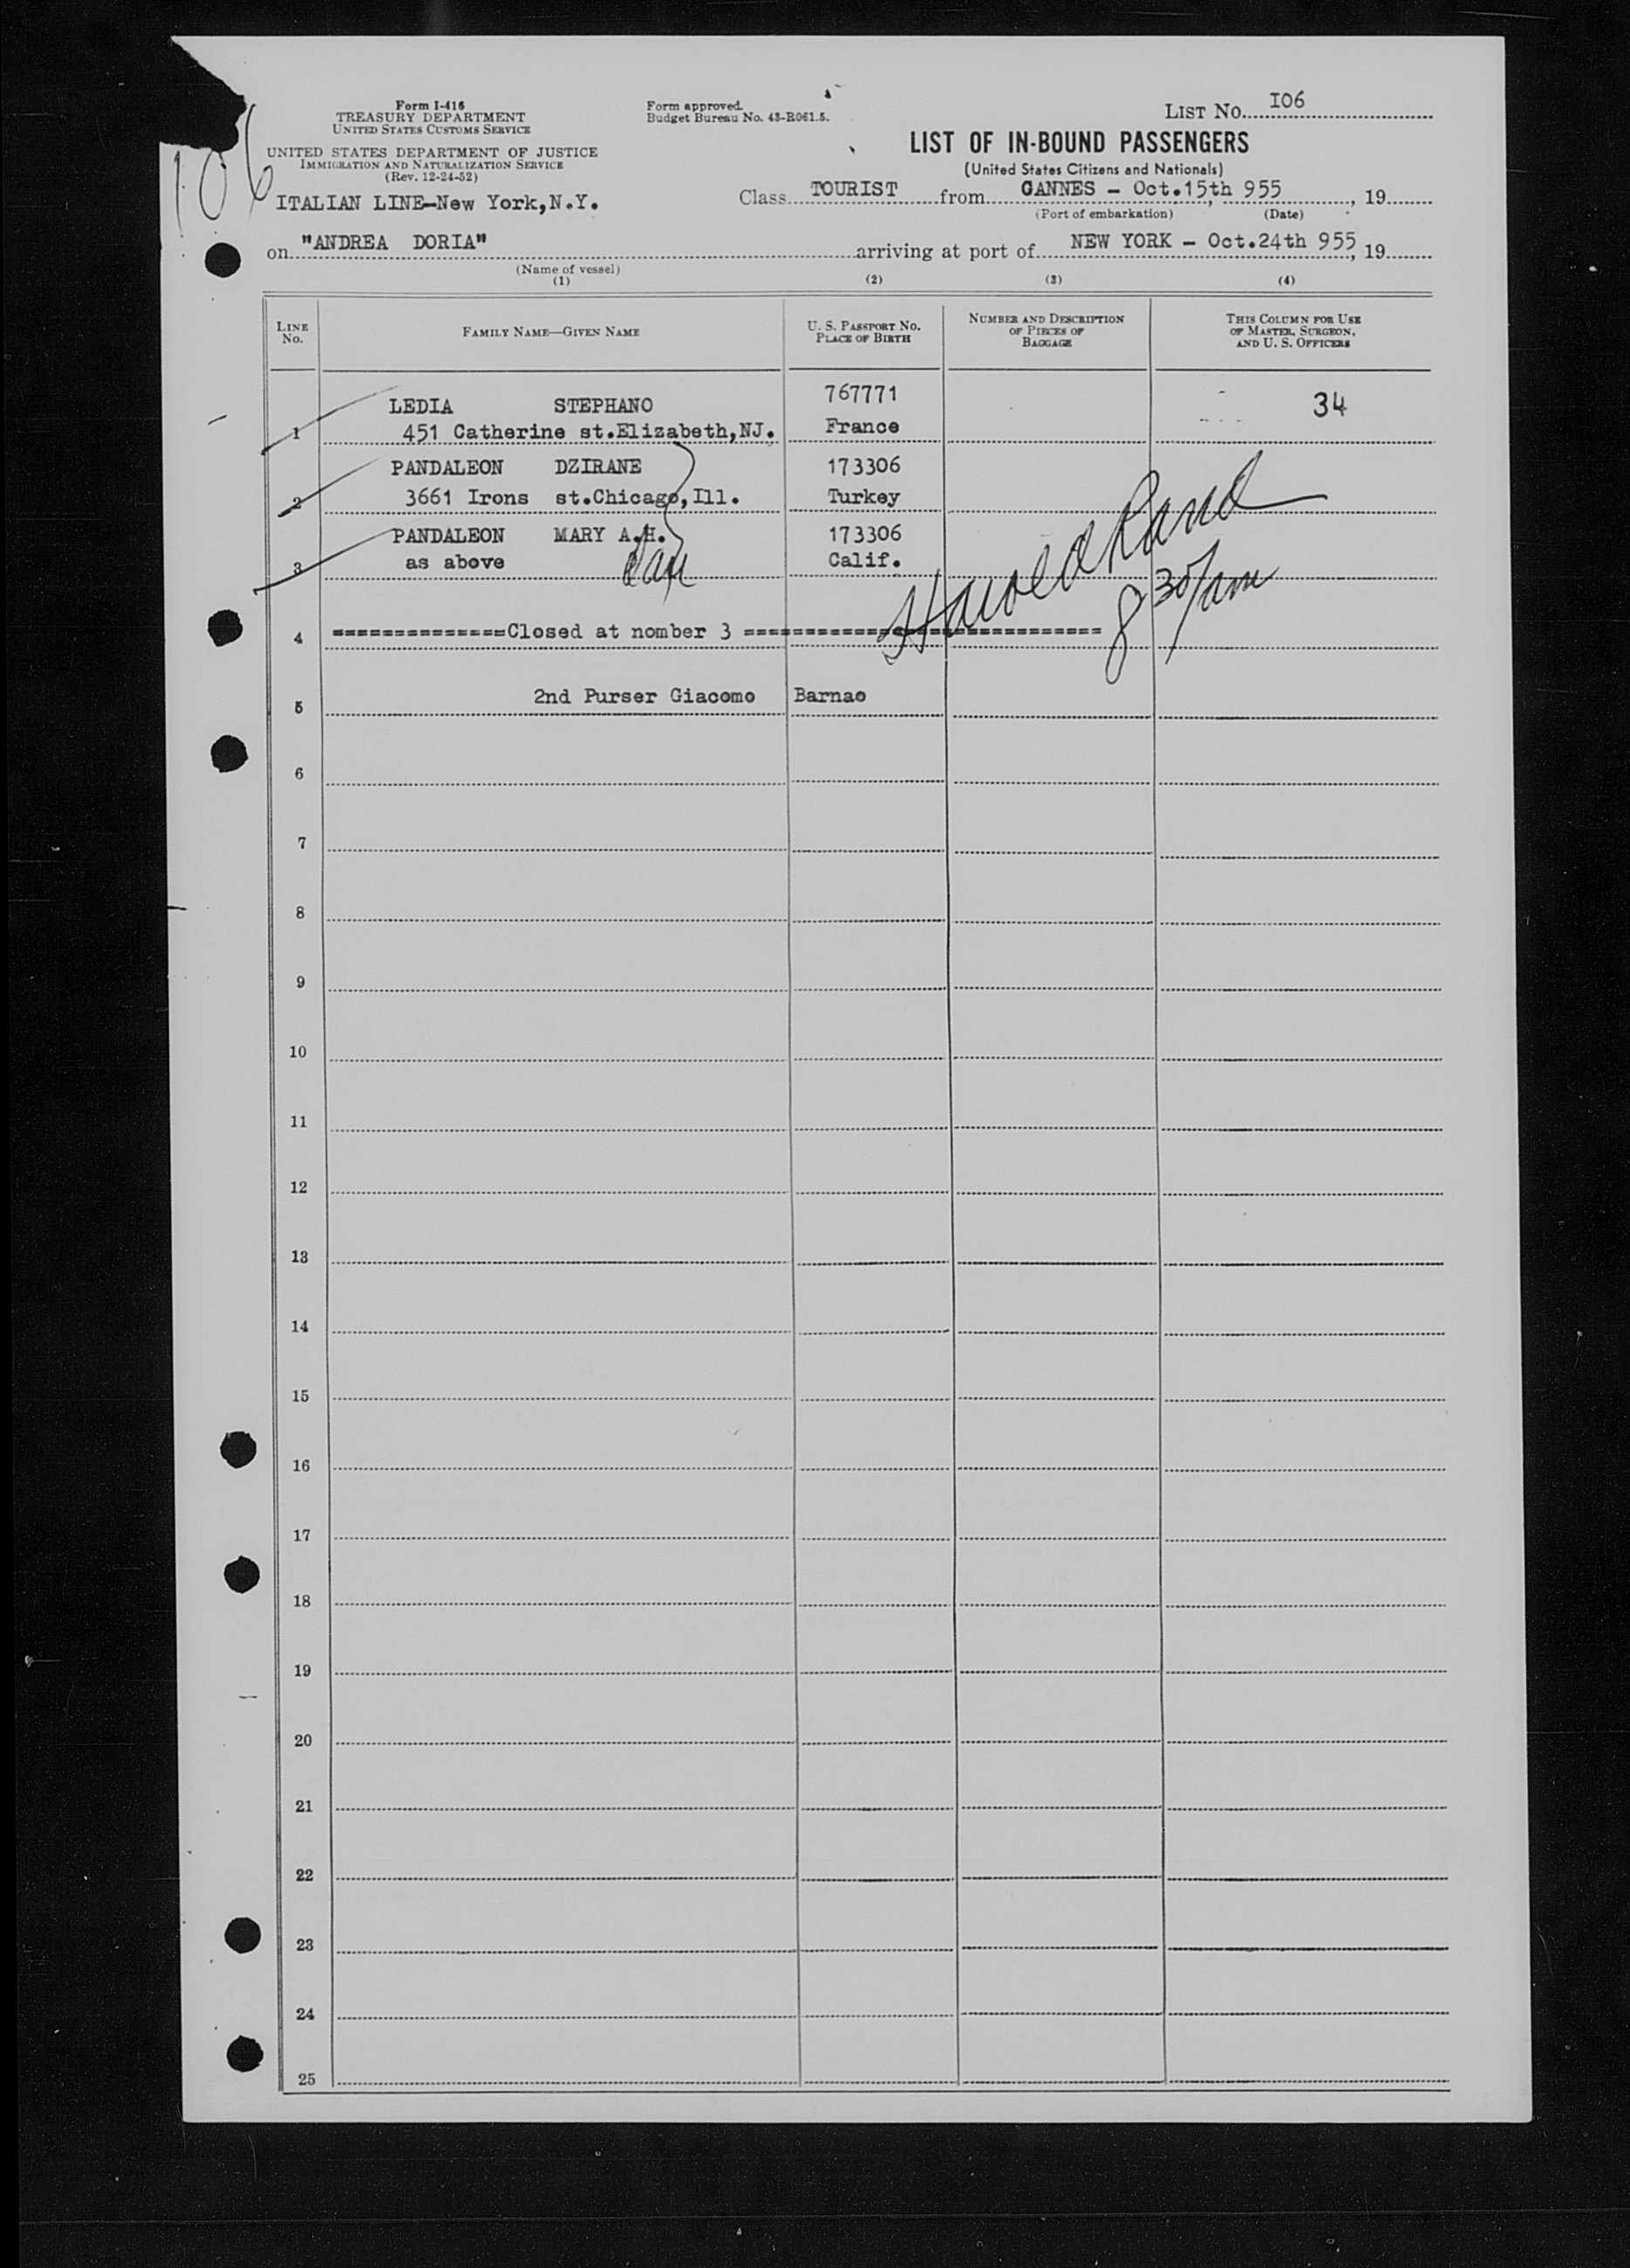 Form I-416
TREASURY DEPARTMENT
UNITED STATES CUSTOMS SERVICE
UNITED STATES DEPARTMENT OF JUSTICE
IMMIGRATION AND NATURALIZATION SERVICE
(Rev. 12-24-52)
Form approved.
Budget Bureau No. 43-R061.5.
LIST NO. I06
LIST OF IN-BOUND PASSENGERS
(United States Citizens and Nationals)
106
ITALIAN LINE-New York,N.Y.
Class TOURIST from CANNES - Oct.15th 955, 19
(Port of embarkation) (Date)
on "ANDREA DORIA" arriving at port of NEW YORK - Oct.24th 955, 19
(Name of vessel)
(1) (2) (3) (4)
LINE NO. FAMILY NAME—GIVEN NAME U. S. PASSPORT NO. PLACE OF BIRTH NUMBER AND DESCRIPTION OF PIECES OF BAGGAGE THIS COLUMN FOR USE OF MASTER, SURGEON, AND U. S. OFFICERS
LEDIA STEPHANO 767771 34
1 451 Catherine st.Elizabeth,NJ. France
PANDALEON DZIRANE 173306
2 3661 Irons st.Chicago,Ill. Turkey
PANDALEON MARY A.H. 173306
3 as above Calif.
Harold Rand
8 30/am
4 ==============Closed at nomber 3 =============================
5 2nd Purser Giacomo Barnao
6
7
8
9
10
11
12
13
14
15
16
17
18
19
20
21
22
23
24
25